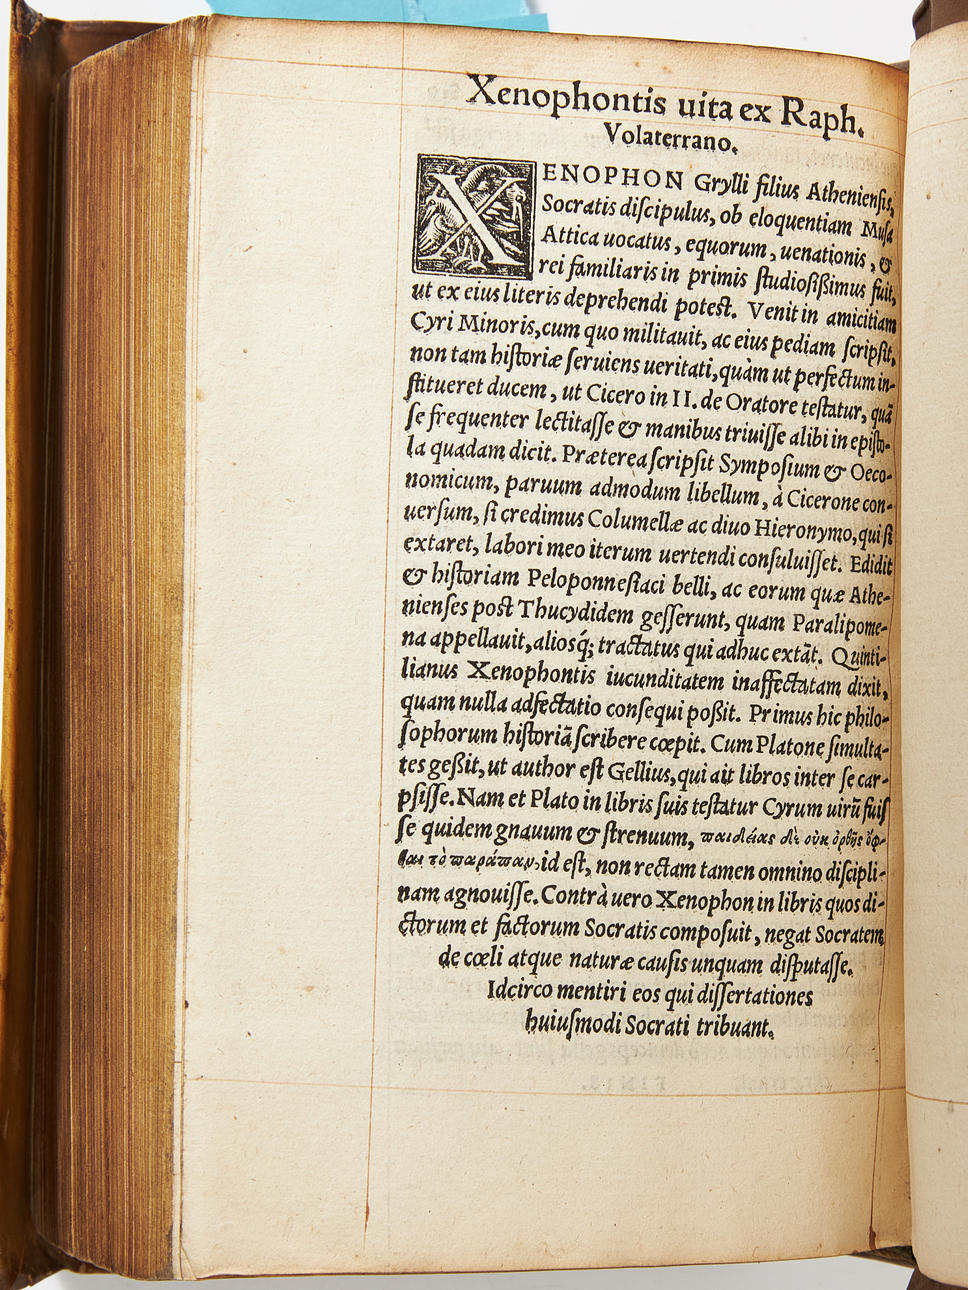 Xenophontis uita ex Raph.
Volaterrano.
XENOPHON Grylli filius Atheniensis,
Socratis discipulus, ob eloquentiam Musa
Attica uocatus, equorum, uenationis, &
rei familiaris in primis studiosißimus fuit,
ut ex eius literis deprehendi potest. Venit in amicitiam
Cyri Minoris, cum quo militauit, ac eius pediam scripsit,
non tam historiæ seruiens ueritati, quàm ut perfectum in-
stitueret ducem, ut Cicero in II. de Oratore testatur, quã
se frequenter lectitasse & manibus triuisse alibi in episto-
la quadam dicit. Præterea scripsit Symposium & Oeco-
nomicum, paruum admodum libellum, à Cicerone con-
uersum, si credimus Columellæ ac diuo Hieronymo, qui si
extaret, labori meo iterum uertendi consuluisset. Edidit
& historiam Peloponnesiaci belli, ac eorum quæ Athe-
nienses post Thucydidem gesserunt, quam Paralipome-
na appellauit, aliosq́; tractatus qui adhuc extãt. Quinti-
lianus Xenophontis iucunditatem inaffectatam dixit,
quam nulla adfectatio consequi poßit. Primus hic philo-
sophorum historiã scribere cœpit. Cum Platone simulta-
tes geßit, ut author est Gellius, qui ait libros inter se car-
psisse. Nam et Plato in libris suis testatur Cyrum uirũ fuis
se quidem gnauum & strenuum, παιδείας δὲ οὐκ ὀρθῆς ἧφ-
θαι τὸ παράπαν, id est, non rectam tamen omnino discipli-
nam agnouisse. Contrà uero Xenophon in libris quos di-
ctorum et factorum Socratis composuit, negat Socratem
de cœli atque naturæ causis unquam disputasse.
Idcirco mentiri eos qui dissertationes
huiusmodi Socrati tribuant.